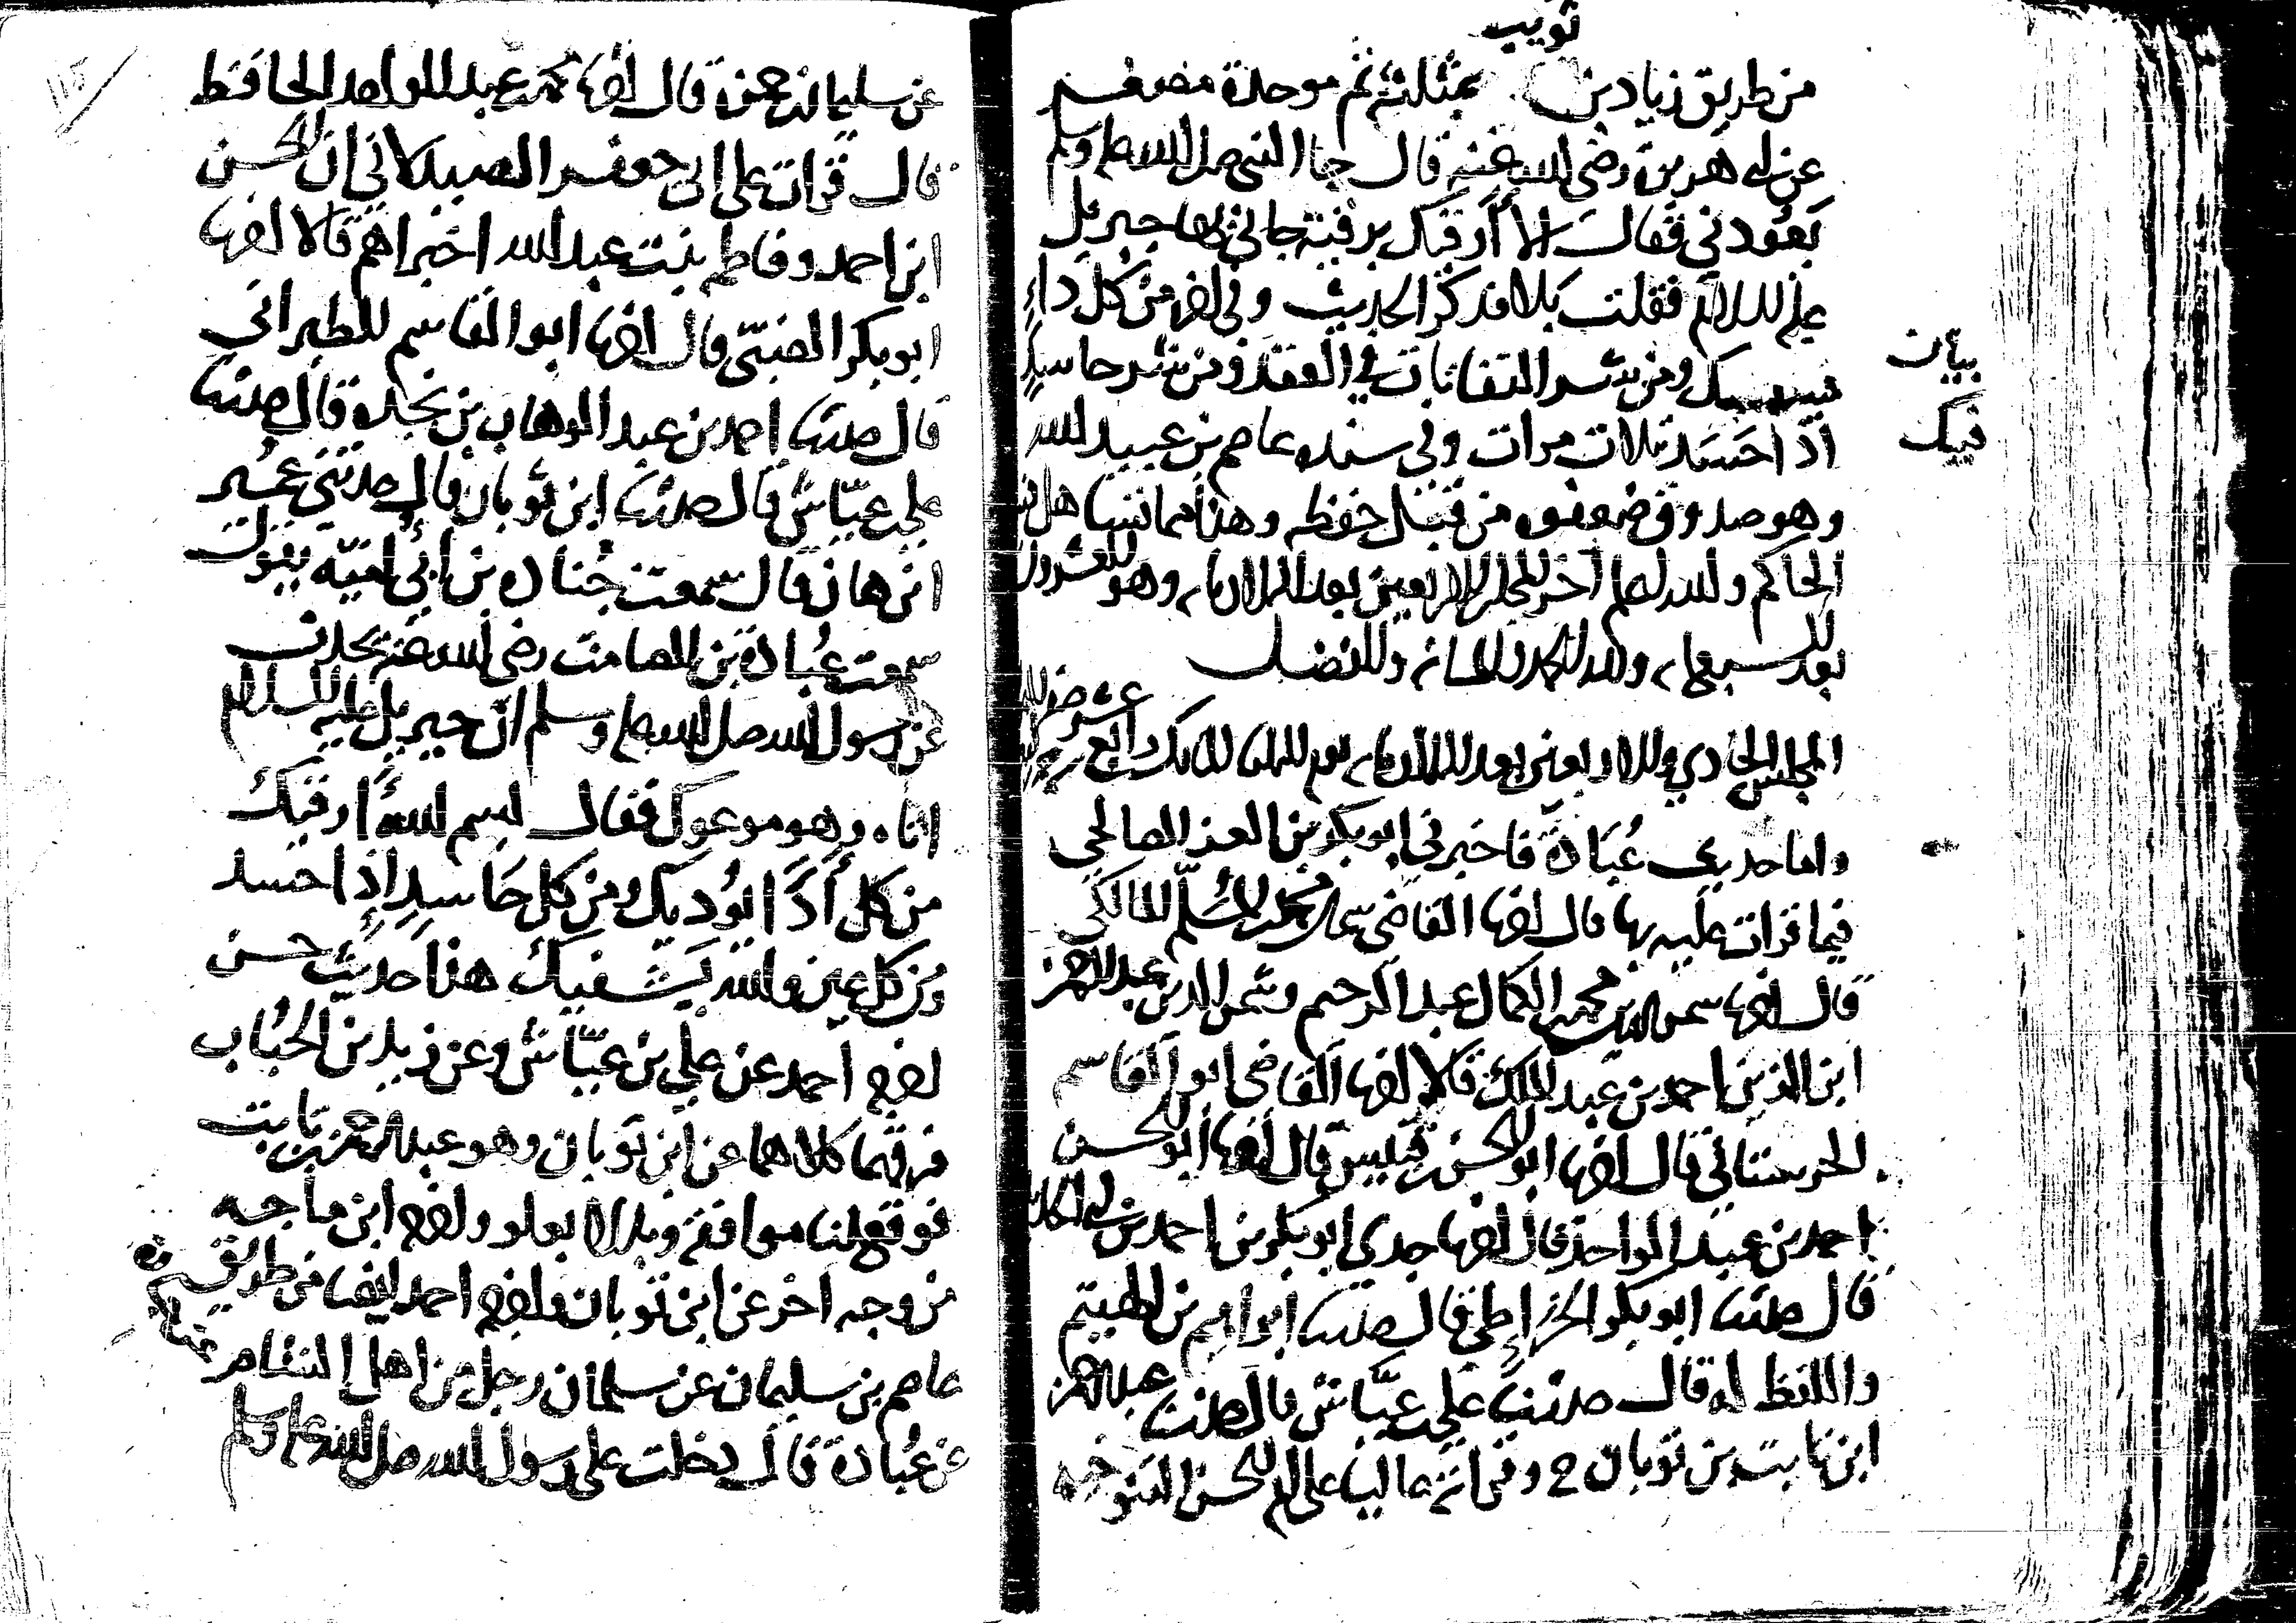 ثويب
من طريق زياد بن بمثلثة ثم موحدة مصغر
عن ابي هريرة رضي الله عنه قال جاء النبي صلى الله عليه وسلم
يعودني فقال الا أرقيك برقية جاني بها جبريل
عليه السلام فقلت بلا فذكر الحديث وفي اخره من كل داء
فيك ومن شر النفاثات في العقد ومن شر حاسد
بيان
فيك
اذا حسد ثلاث مرات وفي سنده عاصم بن عبيد الله
وهو صدوق ضعفوه من قبل حفظه وهذا مما تساهل فيه
الحاكم والله اعلم اخر المجلس الاربعين بعد الثلاثمائة وهو العشرون
بعد السبعمائة ولله الحمد والمنة والفضل
المجلس الحادي والاربعين بعد الثلاثمائة يوم الثلاثا رابع عشر
واما حديث عُبَادة فاخبرني ابو بكر بن العز الصالحي
فيما قرات عليه بها قال اخبرنا القاضي محمد بن المسلم المالكي
قال اخبرنا شمس الدين محمد بن الكمال عبد الرحيم وشمس الدين عبد الرحمن
ابن الزين احمد بن عبد الملك قالا اخبرنا القاضي ابو القاسم
الحرستاني قال اخبرنا ابو الحسن بن قبيس قال اخبرنا ابو الحسن
احمد بن عبد الواحد قال اخبرنا جدي ابو بكر بن احمد
قال حدثنا ابو بكر الخرائطي قال حدثنا ابراهيم بن الهيثم
واللفظ له قال حدثنا علي بن عيّاش قال حدثنا عبد الرحمن
ابن ثابت بن ثوبان ح وقراته عاليا على ام الحسن التنوخية
عن سليمان بن حمزة قال اخبرنا محمد بن عبد الواحد الحافظ
قال قرات على ابي جعفر الصيدلاني ان الحسن
ابن احمد وفاطمة بنت عبد الله اخبراهم قالا اخبرنا
ابو بكر الضبي قال اخبرنا ابو القاسم الطبراني
قال حدثنا احمد بن عبد الوهاب بن نجدة قال حدثنا
علي بن عيّاش قال حدثنا ابن ثوبان قال حدثني عمير
ابن هانئ قال سمعت جُنادة بن أبي أمية يقول
سمعت عُبادة بن الصامت رضي الله عنه يحدث
عن رسول الله صلى الله عليه وسلم ان جبريل عليه السلام
اتاه وهو موعوك فقال بسم الله أرقيك
من كل أذًا يؤذيك ومن كل حاسد اذا حسد
ومن كل عين والله يشفيك هذا حديث حسن
اخرجه احمد عن علي بن عيّاش وعن زيد بن الحُباب
فرقهما كلاهما عن ابن ثوبان وهو عبد الرحمن بن ثابت
فوقع لنا موافقة وبدلا بعلو واخرجه ابن ماجه
من وجه اخر عن ابن ثوبان واخرجه احمد ايضا من طريق
عاصم بن سليمان عن سلمان رجل من اهل الشام
عن عُبادة قال دخلت على رسول الله صلى الله عليه وسلم